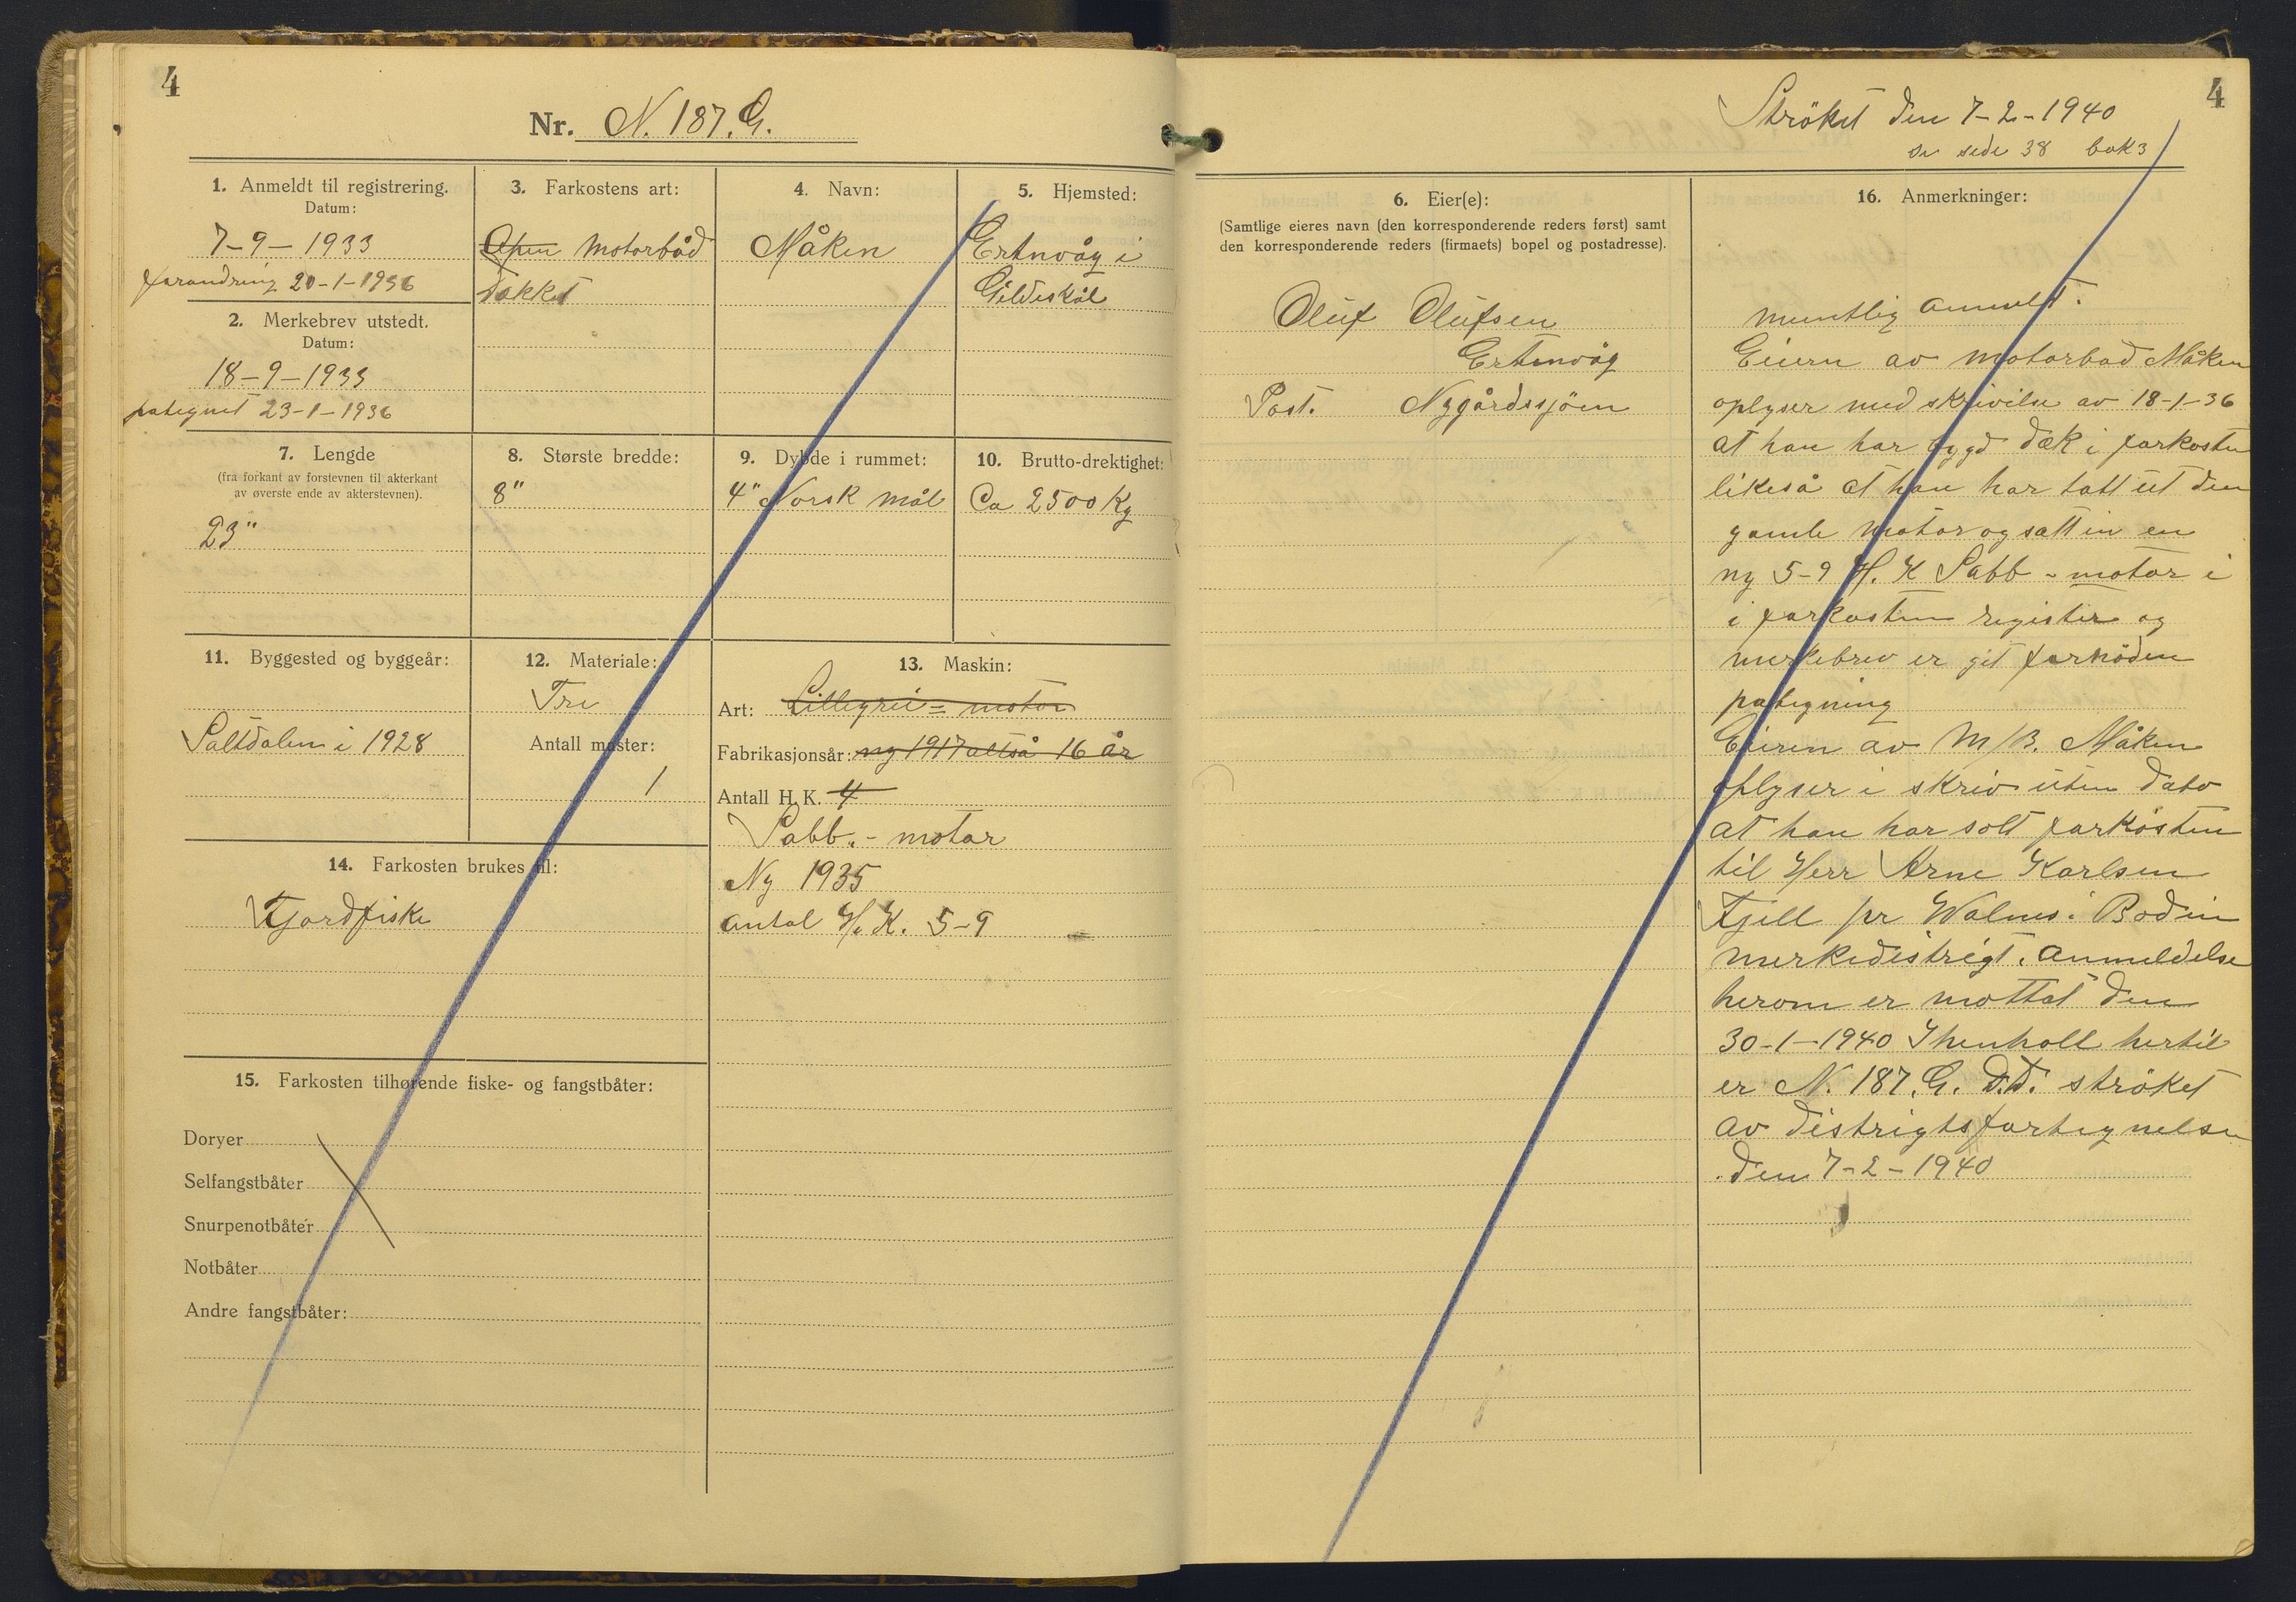 4
Nr. N. 187. G.
1. Anmeldt til registrering.
Datum:
7-9-1933
forandring 20-1-1936
2. Merkebrev utstedt.
Datum:
18-9-1933
pategnet 23-1-1936
3. Farkostens art:
Åpen Motorbåd
Dækket
4. Navn:
Måken
5. Hjemsted:
Ertnvåg i
Gildeskål
7. Lengde
(fra forkant av forstevnen til akterkant
av øverste ende av akterstevnen).
23"
8. Største bredde:
8"
9. Dybde i rummet:
4" Norsk mål
10. Brutto-drektighet:
Ca 2500 Kg
11. Byggested og byggeår:
Saltdalen i 1928
12. Materiale:
Tre
Antall master:
1
13. Maskin:
Art: motor
Fabrikasjonsår: ny 1917 altså 16 år
Antall H. K. 4
Sabb.- motor
Ny 1935
antal H. K. 5-9
14. Farkosten brukes til:
Fjordfiske
15. Farkosten tilhørende fiske- og fangstbåter:
Doryer
Selfangstbåter
Snurpenotbåter
Notbåter
Andre fangstbåter:
4
Strøket den 7-2-1940
se side 38 bok 3
6. Eier(e):
(Samtlige eieres navn (den korresponderende reders først) samt
den korresponderende reders (firmaets) bopel og postadresse).
Oluf Olufsen
Ertenvåg
Post. Nygårdssjøen
16. Anmerkninger:
muntlig anmeldt.
Eieren av motorbåd Måken
oplyser med skrivelse av 18-1-36
at han har bygd dæk i farkosten
likeså at han har tatt ut den
gamle motor og satt in en
ny 5-9 H. K Sabb - motor i
i farkosten register og
merkebrev er git fornøden
pategning
Eieren av M/B. Måken
oplyser i skriv uten dato
at han har solt farkosten
til Herr Arne Karlsen
Fjell pr Valnes i Bodin
merkedistrigt. anmeldelse
herom er mottat den
30-1-1940 I henholl hertil
er N. 187. G. D.D. strøket
av distrigtsfortegnelsen
den 7-2-1940